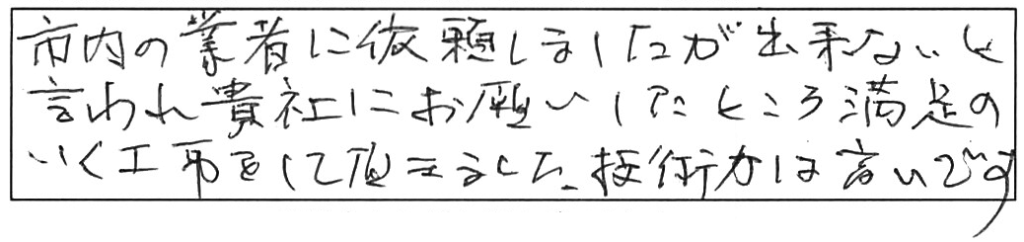 市内の業者に依頼しましたが出来ないと
言われ貴社にお願いしたところ満足の
いく工事をして頂きました。技術力は高いです